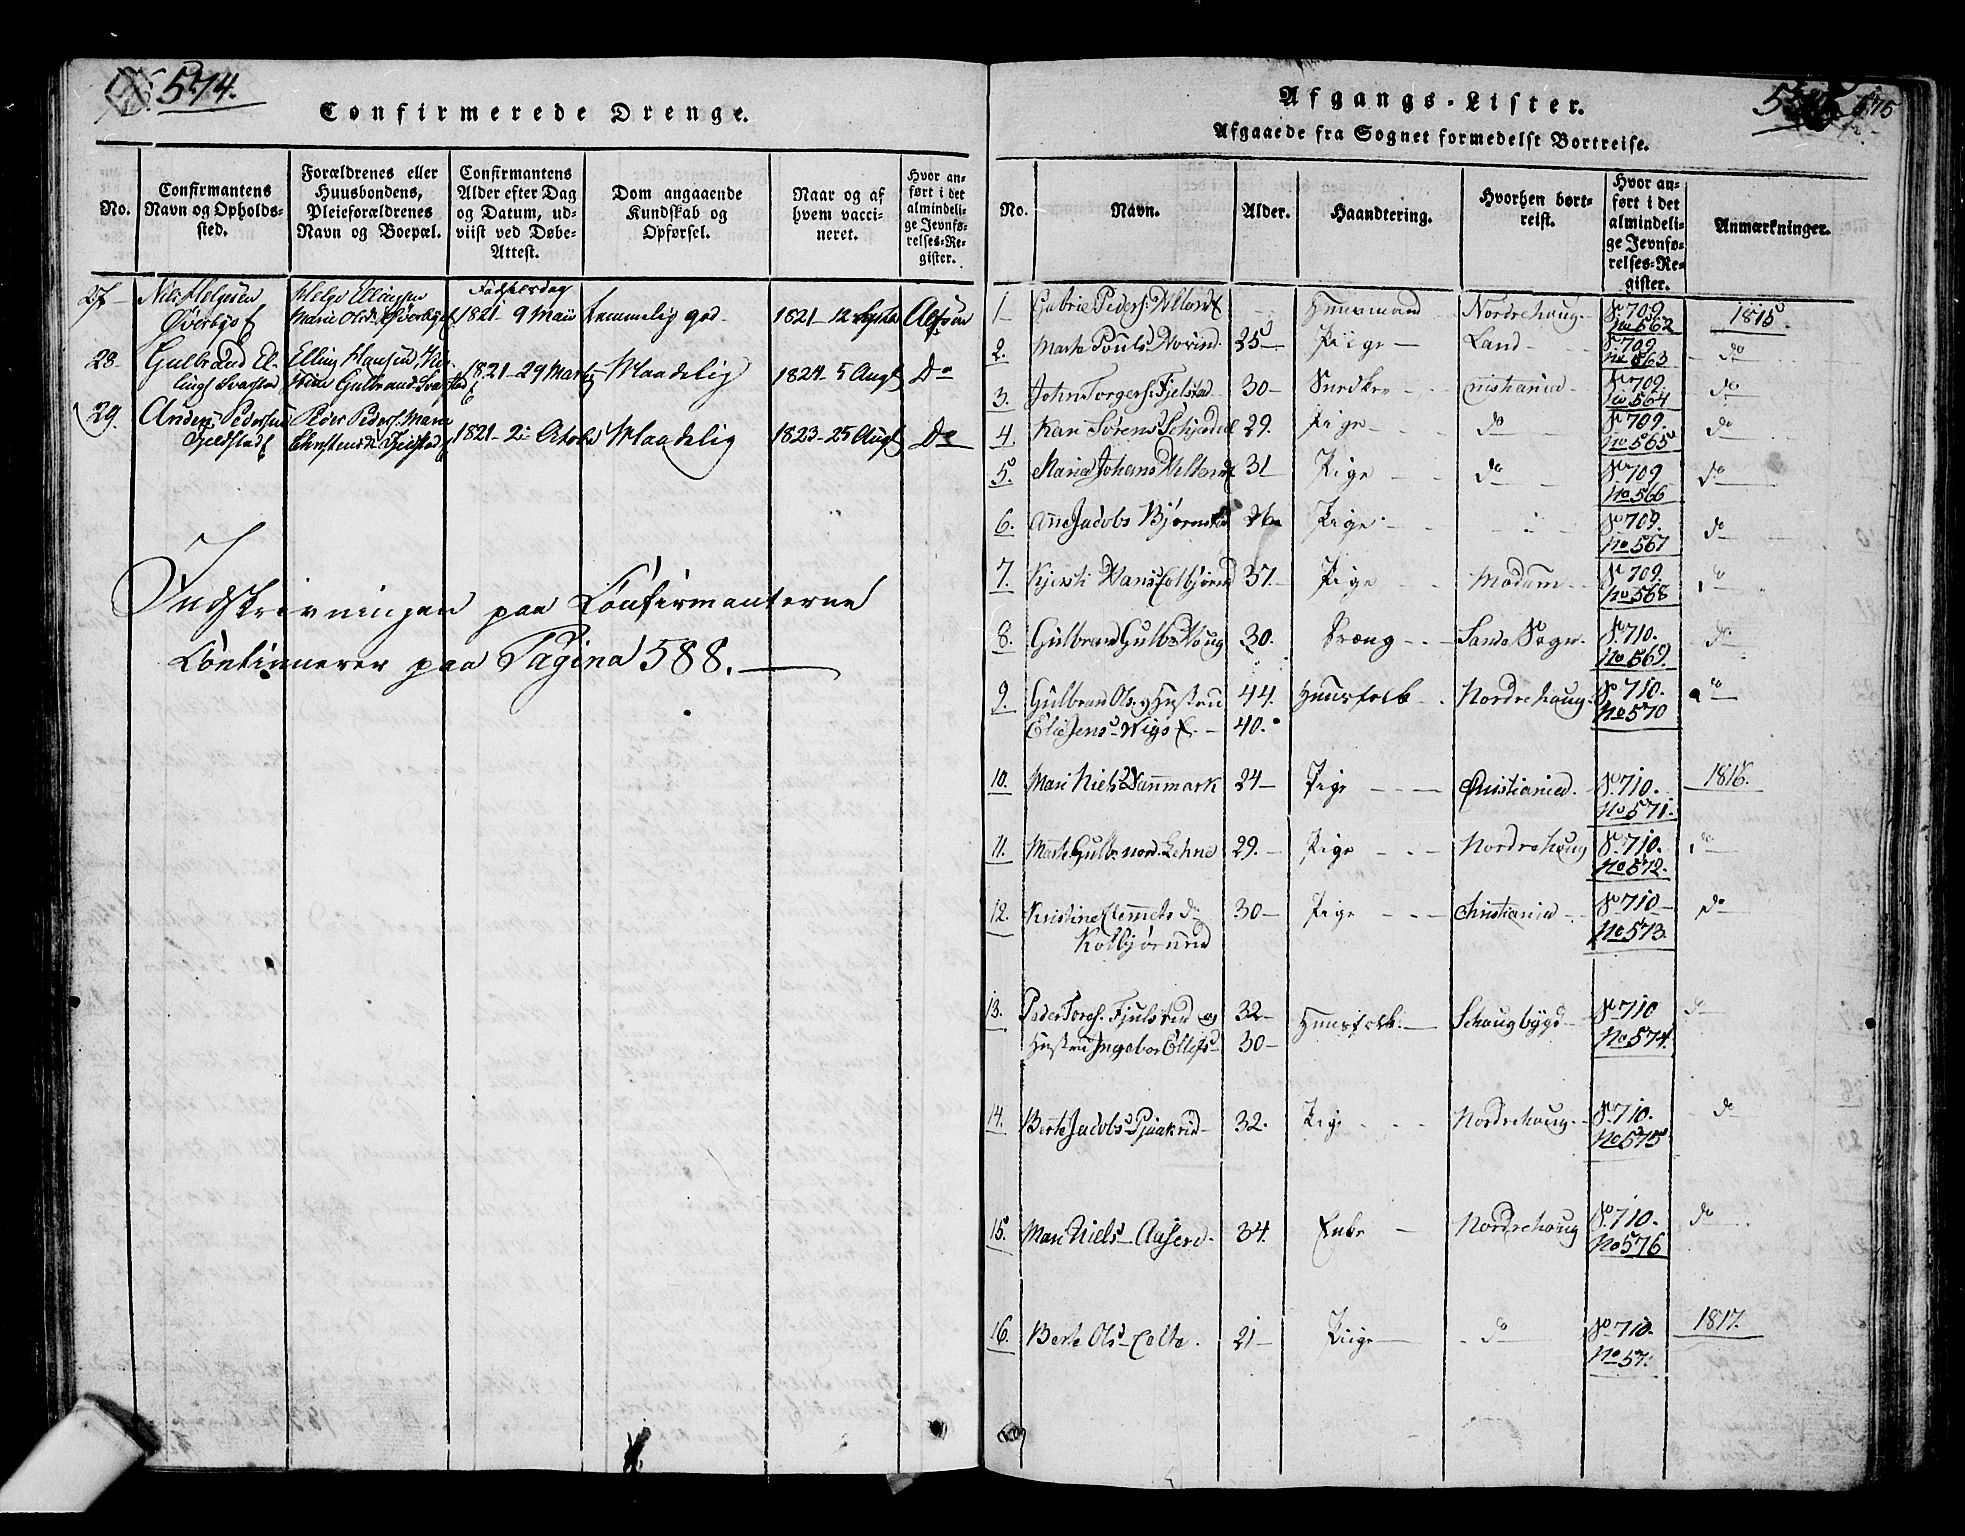 574.
Confirmerede Drenge.
No.
Confirmantens Navn og Opholdssted.
Forældrenes eller Huusbondens, Pleieforældrenes Navn og Boepæl.
Confirmantens Alder efter Dag og Datum, udviist ved Døbe-Attest.
Dom angaaende Kundskab og Opførsel.
Naar og af hvem vaccineret.
Hvor anført i det almindelige Jevnførelses-Register.
27 Niels Helgesen Helge Ellingsen Fødselsdag
Øverbye Marie Olsd. Øverbye 1821 - 9 Maii temmelig god 1821 - 12
28 Gulbrand El- Elling Hansen
lings Svarstad Gulbrands Svarstad 1821 - 29 Marty Maadelig 1824 - 5 Augt Do
29. Anders Pedersen Peder Peders. Marie
Fieldstad Christensd. Fieldstad 1821 - 2 Maadelig 1823 - 25 Augt Do
Indskrivningen paa Confirmanterne
Continuerer paa Pagina 588.
575
Afgangs-Lister.
Afgaaede fra Sognet formedelst Bortreise.
No.
Navn.
Alder.
Haandtering.
Hvorhen bortreist.
Hvor anført i det almindelige Jevnførelses-Register.
Anmærkninger.
1 Gabriel Peders. Huusmand Nordrehoug. S. 709. No 562 1815
2. Marte Pouls Hovind 25 Piige Land S. 709. No 563 do
3. John Torgers. Fjelstad 30 Christiania S. 709. No 564 do
4 Kari Sørens Schjødel 29. Piige do S. 709. No 565 do
5. Maria Johans 31 Pige do S. 709 No 566 do
6. Anne Jacobs Bjørnstad 26 Pige S. 709. No 567 do
7. Kjersti Hans Colbjørnrud 37. Pige Modum S. 709. No 568 do
8. Gulbrand Gulbr. Houg 30. Dræng Sands Sogn S. 710. No 569. do
9. Gulbran Ols. og Hustru 44. Huusfolk Nordrehoug. S. 710. No 570 do
40.
10. Mari Niels Danmark 24 Pige Christiania. S. 710. No 571. 1816.
11. Marte Gulbr. nord. Lehne 29. Pige Nordrehoug S. 710. No 572. do
12. Kristine Clemmets d. 30 Pige Christiania S. 710 No 573. do
Kolbjørnrud
13. Peder Tores. Fjulstad og 32 Huusfolk. Schougbygd S. 710 No 574. do
Hustru Ingebor Ottesd 30
14. Berte Jacobs Pjaakrud 32. Pige Nordrehoug. S. 710. No 575 do
15. Mari Niels Aaserud. 34. Enke Nordrehoug S. 710. No 576 do
16. Berte Ols Colte. 21 Piige do S. 710. No 57. 1817.